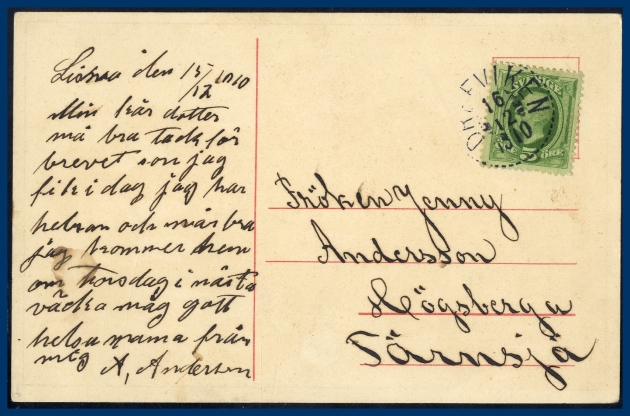 Lisna den 15/12 1910
Min kär dotter
må bra tack för
brevet som jag
fik i dag jag har
helsan och mår bra
jag kommer hem
om torsdag i nästa
väcka måg gott
helsa mama från
mig
A, Anderson
Fröken Jenny
Andersson
Högsberga
Tärnsjö
SVERIGE
16
12
10
ÖRE